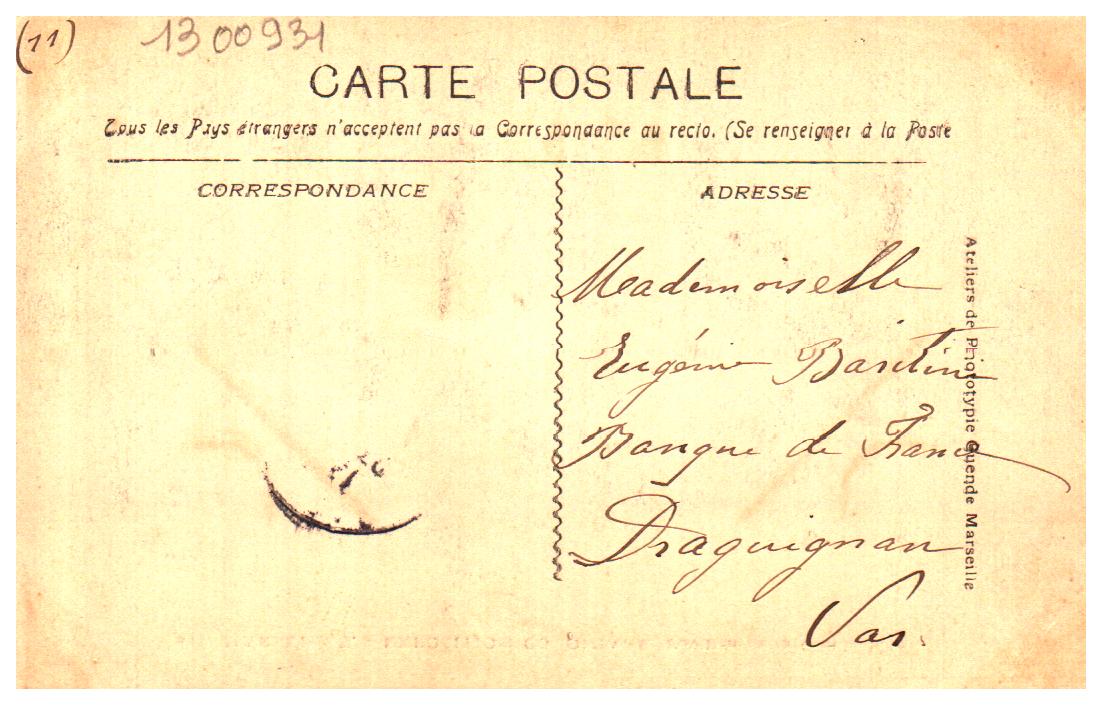 (11)
1300931
CARTE POSTALE
Tous les Pays étrangers n'acceptent pas la Correspondance au recto. (Se renseigner à la Poste
CORRESPONDANCE
ADRESSE
Mademoiselle
Eugénie
Banque de France
Draguignan
Var.
Ateliers de Phototypie Guende Marseille